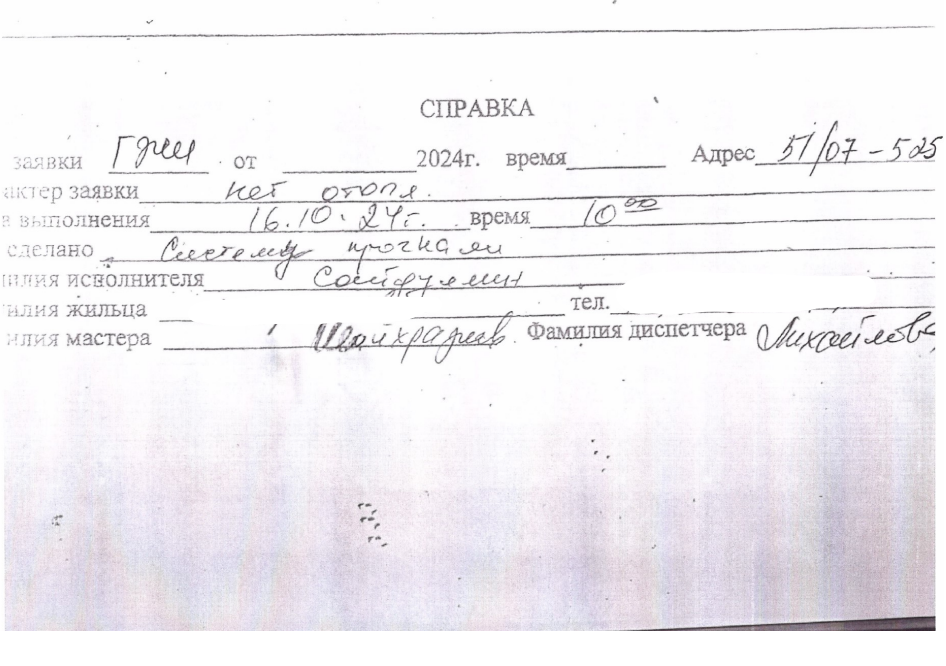 СПРАВКА
заявки ГЖИ от 2024г. время Адрес 51/07-525
актер заявки нет отопл.
а выполнения 16.10.24г. время 10 00
сделано Систему прогнали
илия исполнителя Сайфулин
илия жильца тел.
илия мастера Шайхразиев Фамилия диспетчера Михайлова